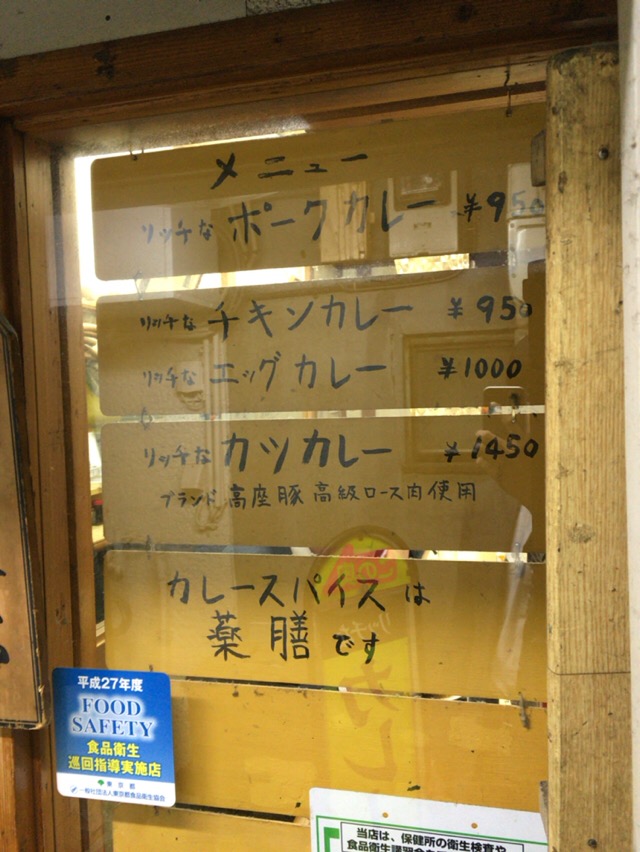 メニュー
リッチな ポークカレー ¥950
リッチな チキンカレー ¥950
リッチな エッグカレー ¥1000
リッチな カツカレー ¥1450
ブランド高座豚高級ロース肉使用
カレースパイスは
薬膳です
平成27年度
FOOD
SAFETY
食品衛生
巡回指導実施店
東京都
一般社団法人東京都食品衛生協会
当店は、保健所の衛生検査や